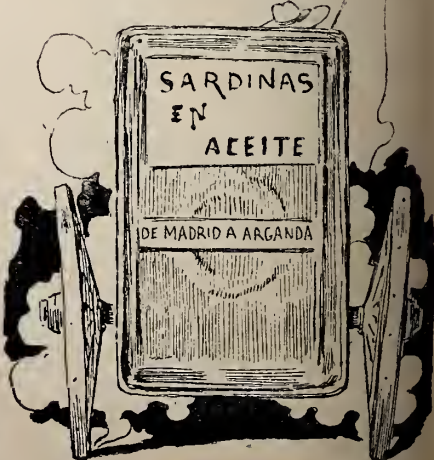 SARDINAS
EN
ACEITE
DE MADRID A ARGANDA